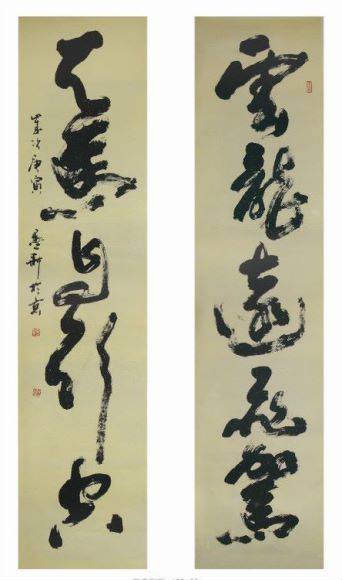 雲龍遠飛駕
天馬自行空
歲次庚寅